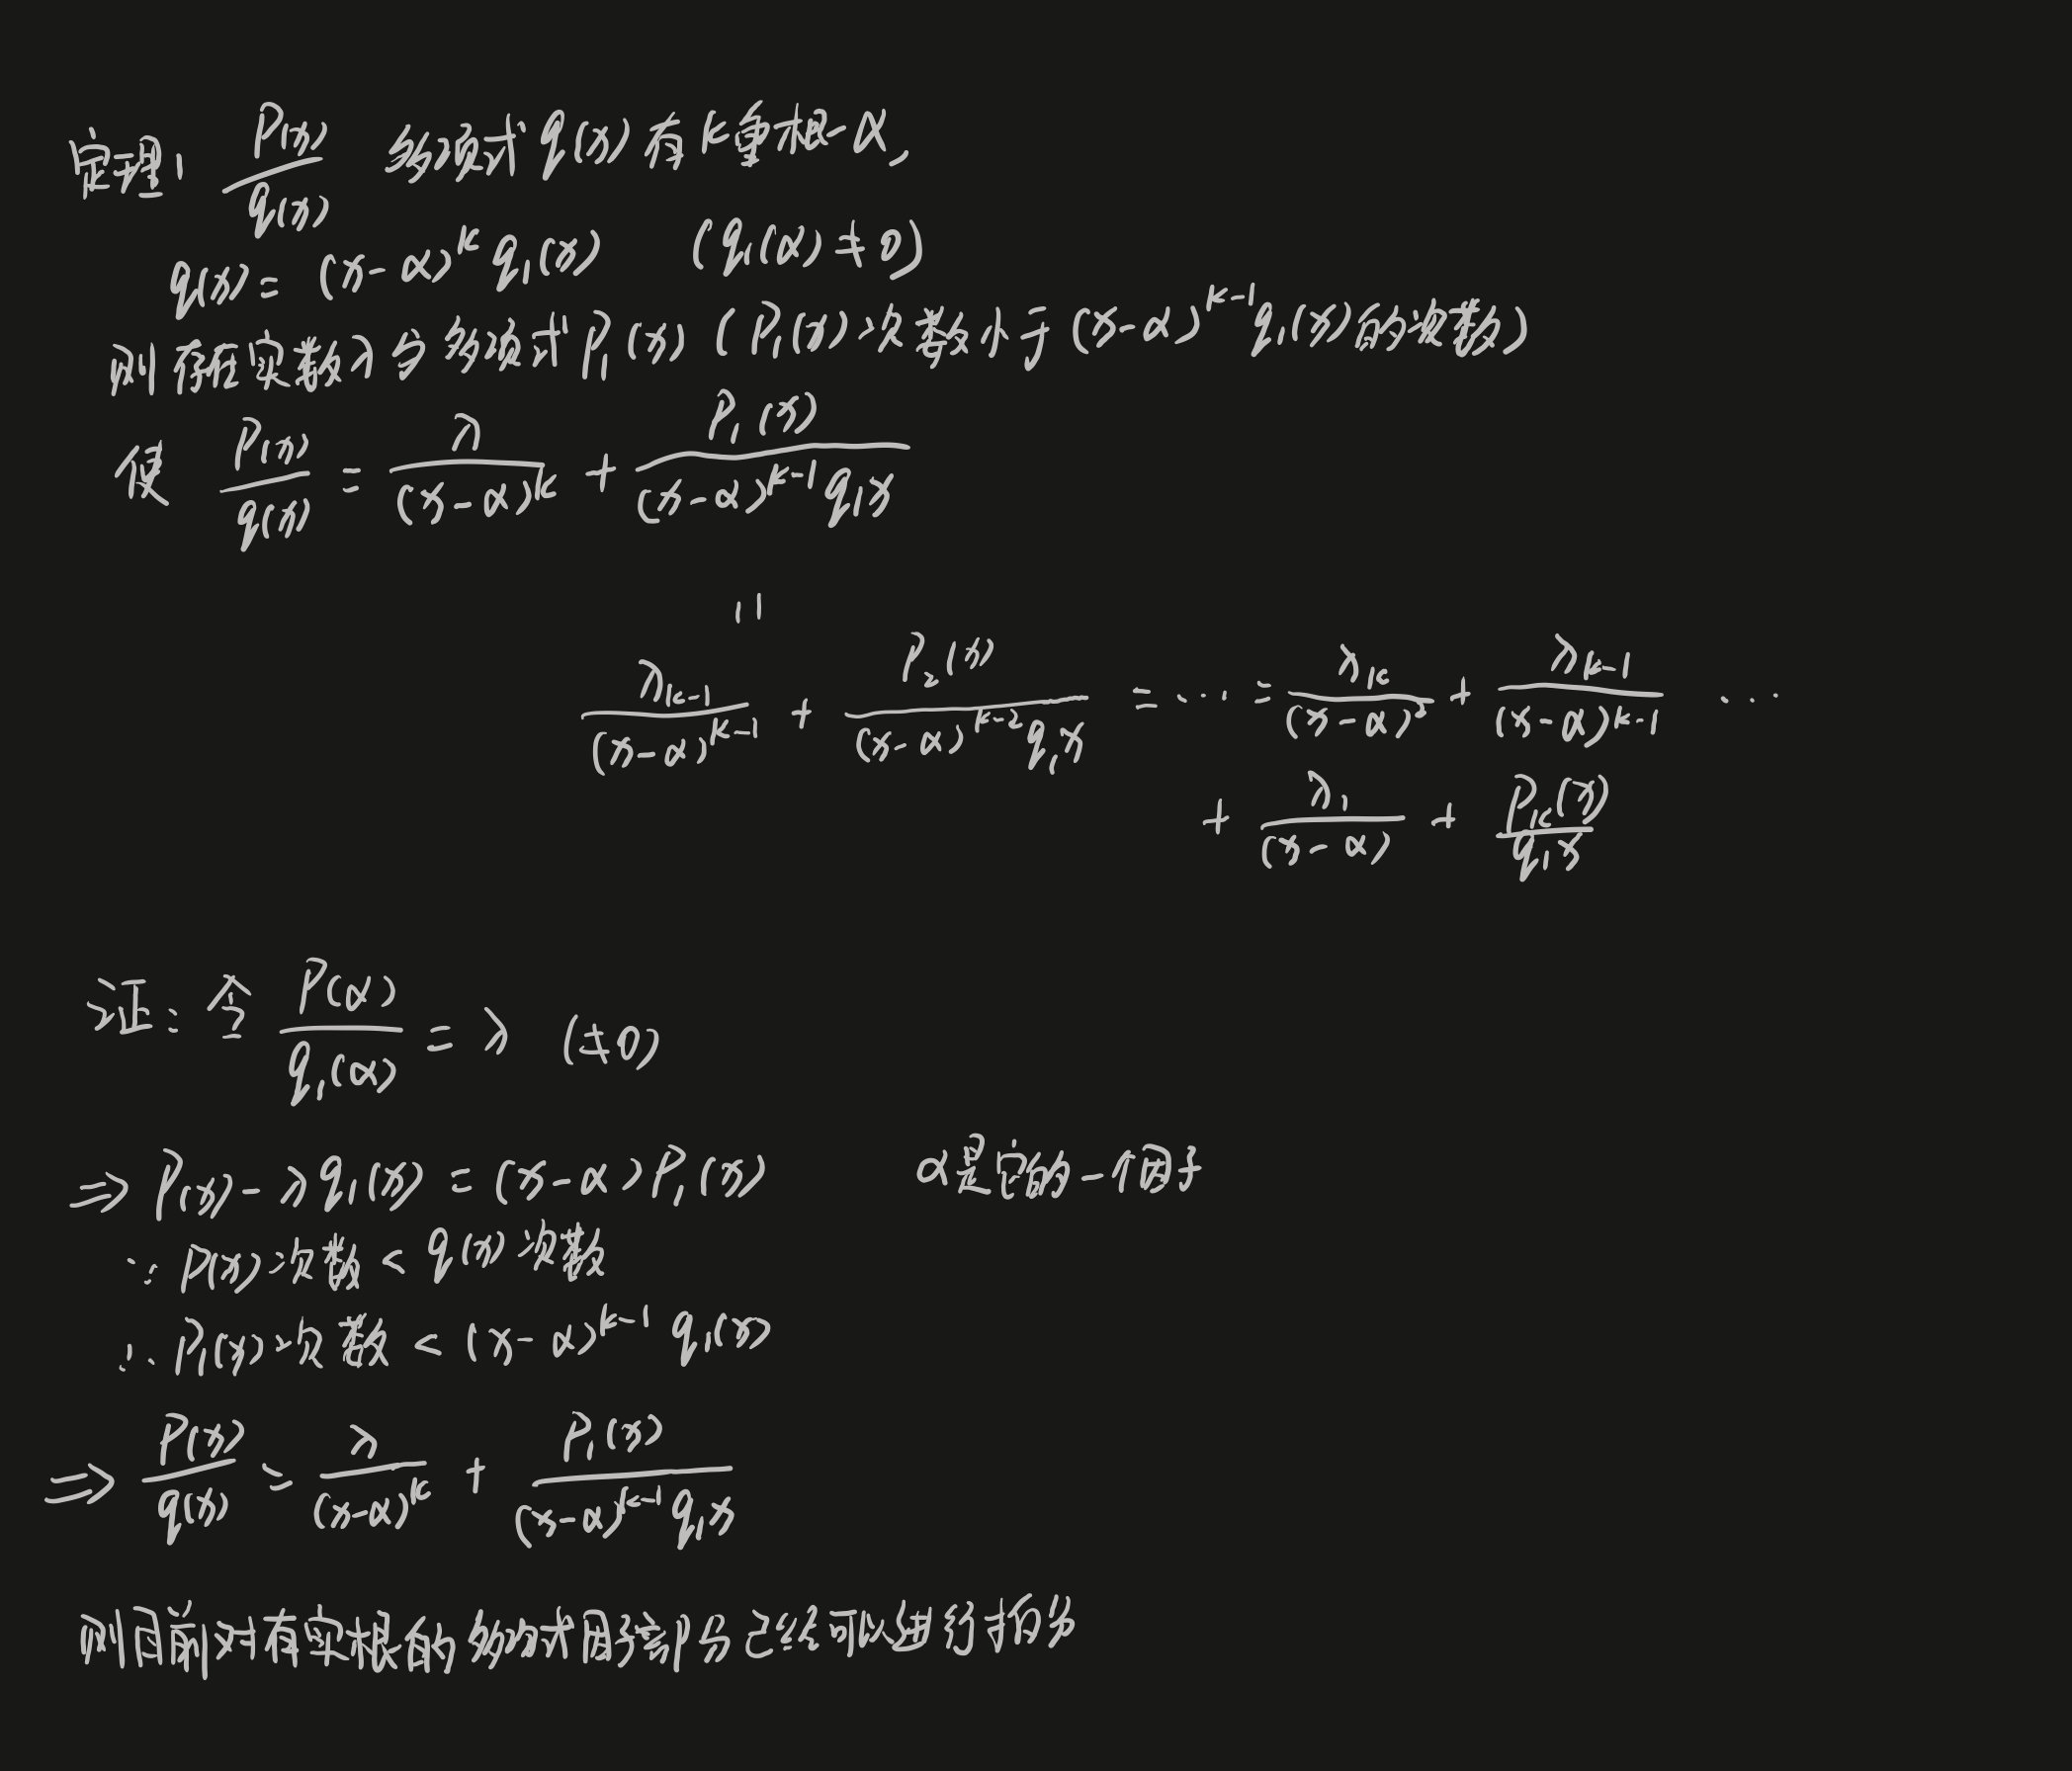 定理1 P(x)/q(x) 多项式 q(x) 有 k重根 α,
q(x) = (x-α)^k q₁(x) (q₁(α)≠0)
则存在实数λ与多项式P₁(x) (P₁(x)次数小于(x-α)^{k-1} q₁(x)的次数)
使 P(x)/q(x) = λ/(x-α)^k + P₁(x)/((x-α)^{k-1} q₁x)
"
λ_{k-1}/(x-α)^{k-1} + P₂(x)/((x-α)^{k-2} q₁x) = ··· = λ_k/(x-α)^k + λ_{k-1}/(x-α)^{k-1} ···
+ λ₁/(x-α) + P_k(x)/q₁x
证: 令 P(α)/q₁(α) = λ (≠0)
⇒ P(x) - λq₁(x) = (x-α)P₁(x) α是它的一个因子
∵ P(x)次数 < q(x)次数
∴ P₁(x)次数 < (x-α)^{k-1} q₁(x)
⇒ P(x)/q(x) = λ/(x-α)^k + P₁(x)/((x-α)^{k-1} q₁x)
则目前对有实根的多项式因式部分已经可以进行拆分